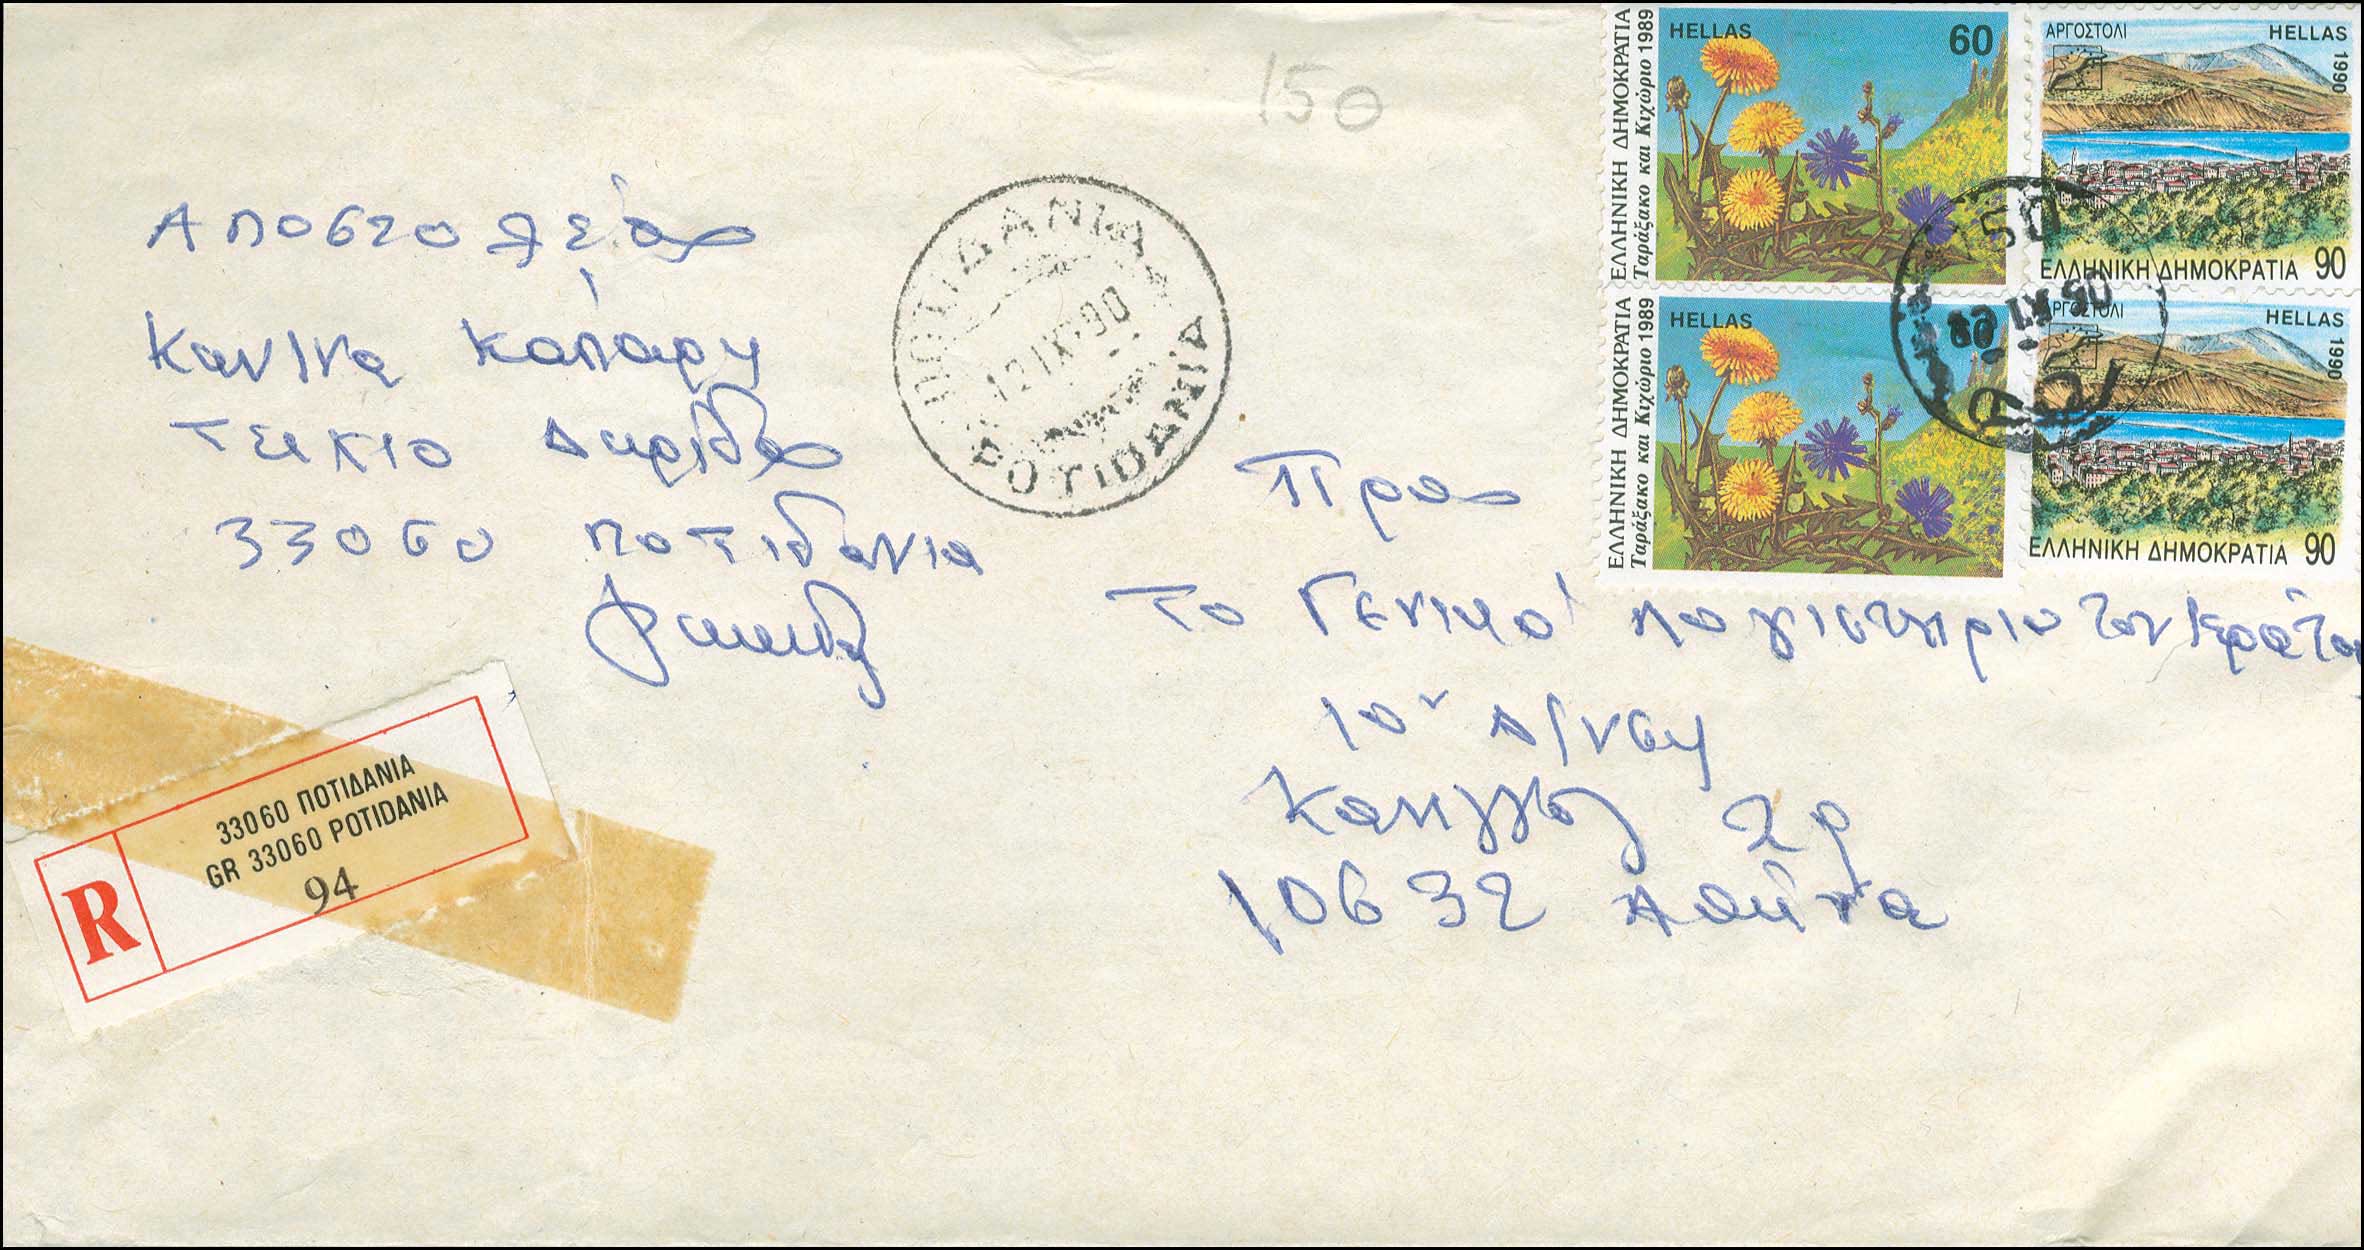 150
Αποστολέας
Κανίνα Καπάρη
Τείχιο Δωρίδος
33060 Ποτιδανια
ΠΟΤΙΔΑΝΙΑ
12 IX 90
POTIDANIA
33060 ΠΟΤΙΔΑΝΙΑ
GR 33060 POTIDANIA
94
R
Προς
Το Γενικό Λογιστήριο του Κράτου
10ν Δ/νση
Κανιγγος 29
10632 Αθήνα
HELLAS 60
ΕΛΛΗΝΙΚΗ ΔΗΜΟΚΡΑΤΙΑ
Ταράξακο και Κιχώριο 1989
ΑΡΓΟΣΤΟΛΙ HELLAS
1990
ΕΛΛΗΝΙΚΗ ΔΗΜΟΚΡΑΤΙΑ 90
HELLAS 60
ΕΛΛΗΝΙΚΗ ΔΗΜΟΚΡΑΤΙΑ
Ταράξακο και Κιχώριο 1989
ΑΡΓΟΣΤΟΛΙ HELLAS
1990
ΕΛΛΗΝΙΚΗ ΔΗΜΟΚΡΑΤΙΑ 90